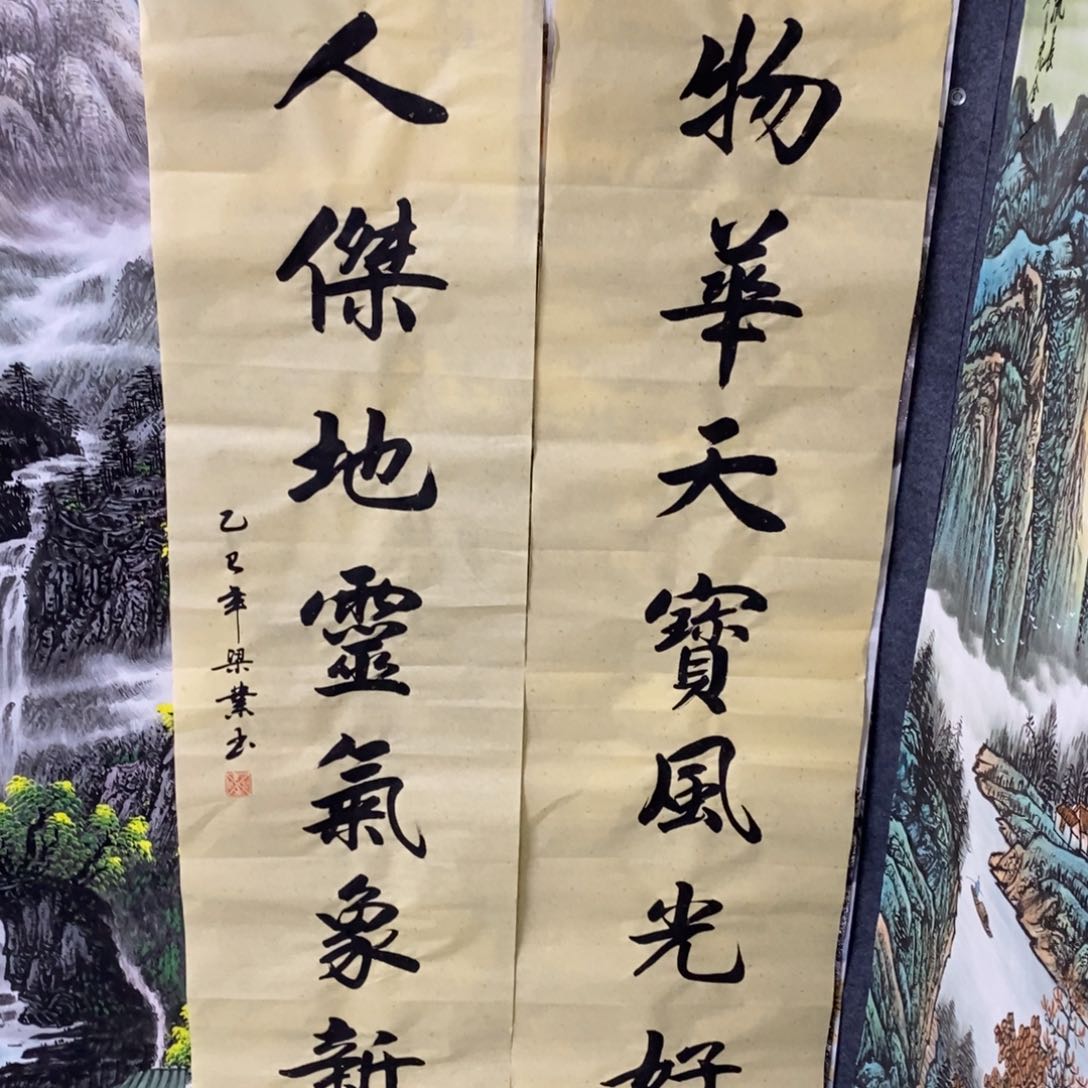 物華天寶風光好
人傑地靈氣象新
乙巳年梁業书